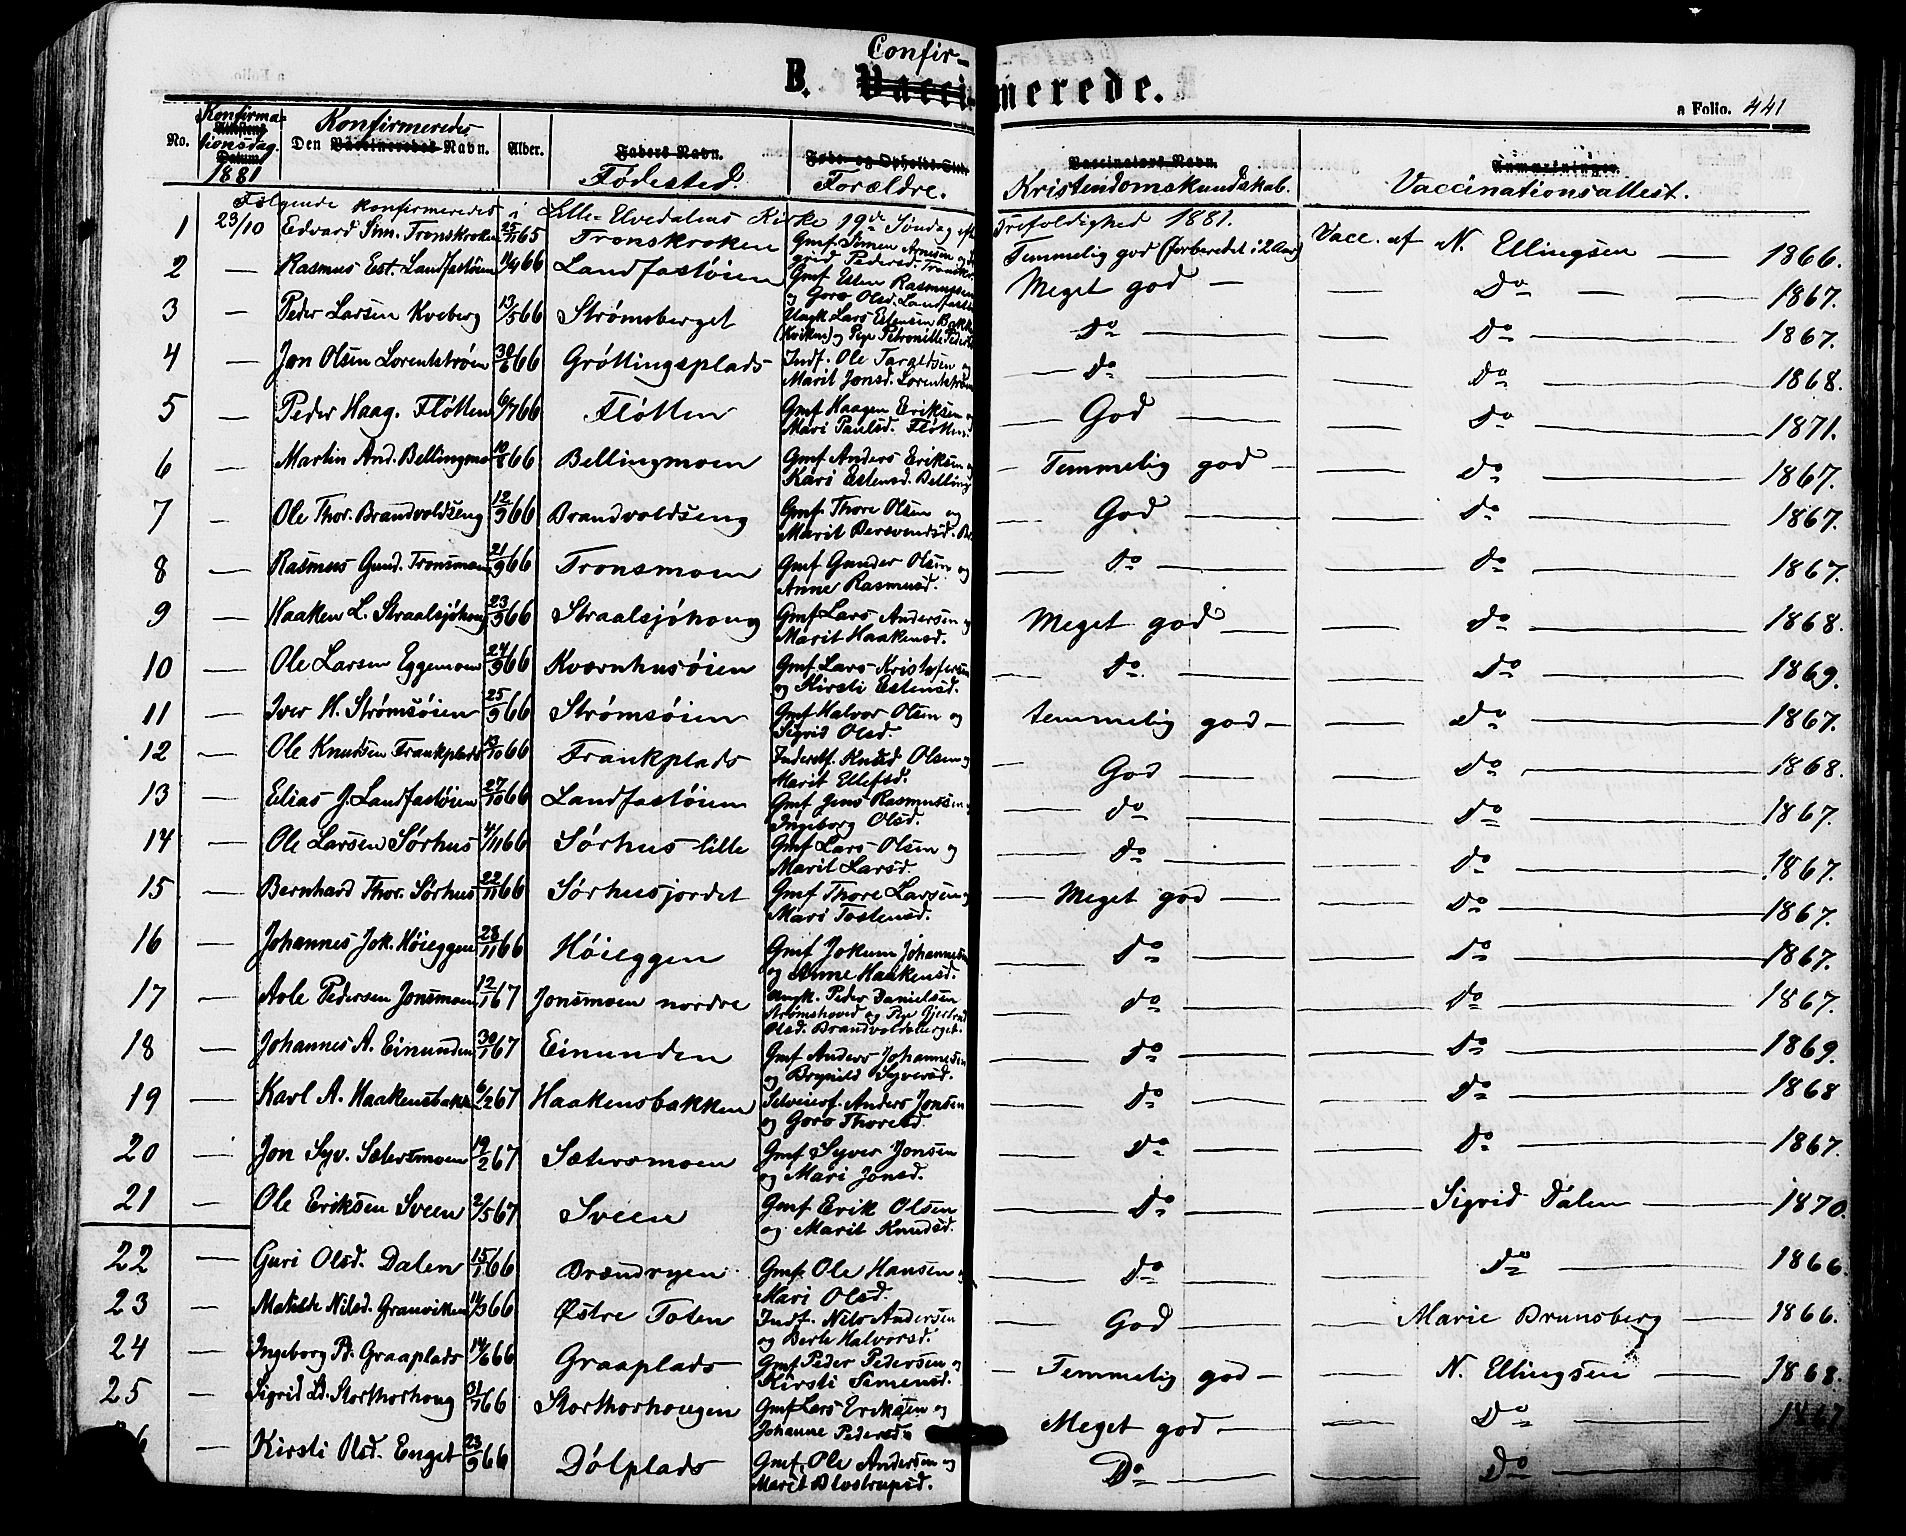 Confir-
B. Vacci nerede.
a Folio. 441
No. Konfirma- tionsdag. 1881 Konfirmeredes Den Vaccineredes Navn. Alder. Faders Navn. Fødested. Føde- og Opholds-Sted Forældre. Vaccinators Navn. Kristendomskundskab. Anmærkninger. Vaccinationsattest.
Følgende konfirmeredes i Lille-Elvedalens Kirke 19de Søndag eft Trefoldighed 1881.
1 23/10 Edvard Sim. Tronskroken 25/11 65 Tronskroken Gmf Simen Arnesen Pedersd. Temmelig god (forberedet i 2 Aar) Vacc. af N. Ellingsen — 1866.
2 — Rasmus Est. Landfastøien 11/4 66 Landfastøien Gmf Esten Rasmussen og Goro Olsd. Meget god — Do — 1867.
3 — Peder Larsen Kveberg 13/5 66 Strømsberget Ungk. Lars Estensen Bakk (Kvikne) og Pige Petronille Do — Do — 1867.
4 — Jon Olsen Lorentstrøen 30/6 66 Grøttingsplads Indf. Ole Taraldsen og Marit Jonsd. Lorentstrøen — Do — Do — 1868.
5 — Peder Haag. Fløtten 6/7 66 Fløtten Gmf Haagen Eriksen og Mari Paulsd. Fløtten — God — Do — 1871.
6 — Martin And. Bellingmo 10/8 66 Bellingmoen Gmf Anders Eriksen og Kari Estensd. Belling — Temmelig god — Do — 1867.
7 — Ole Thor. Brandvoldseng 12/9 66 Brandvoldseng Gmf Thore Olsen og Marit Bersvendsd. — God — Do — 1867.
8 — Rasmus Gund. Tronsmoen 21/9 66 Tronsmoen Gmf Gunder Olsen og Anne Rasmusd. — Do — Do — 1867.
9 — Haaken L. Straalsjøhoug 23/9 66 Straalsjøhoug Gmf Lars Andersen og Marit Haakensd. Meget god — Do — 1868.
10 — Ole Larsen Eggemoen 24/9 66 Kværnhusøien Gmf Lars Kristofersen og Kirsti Estensd. — Do — Do — 1869.
11 — Iver H. Strømsøien 25/9 66 Strømsøien Gmf Halvor Olsen og Sigrid Olsd. temmelig god — Do — 1867.
12 — Ole Knudsen Frankplads 13/10 66 Frankplads Inderstf. Knud Olsen og Marit Ellefsd. — God — Do — 1868.
13 — Elias J. Landfastøien 27/10 66 Landfastøien Gmf Jens Rasmussen Ingeborg Olsd. — Do — Do — 1867.
14 — Ole Larsen Sørhus 4/11 66 Sørhus lille Gmf Lars Olsen og Marit Larsd. — Do — Do — 1867.
15 — Bernhard Thor. Sørhus 22/11 66 Sørhusjordet Gmf Thore Larsen og Mari Tostensd. — Meget god — Do — 1867.
16 — Johannes Jok. Høieggen 28/11 66 Høieggen Gmf Jokum Johannesen og Anne Haakensd. — Do — Do — 1867.
17 — Avle Pedersen Jonsmoen 12/1 67 Jonsmoen nordre Ungk. Peder Danielsen Strømshoved og Pige Gjertrud Olsd. Brandvoldsberget. — Do — Do — 1867.
18 — Johannes A. Einunden 30/1 67 Einunden Gmf Anders Johannesen og Brynild Syversd. — Do — Do — 1869.
19 — Karl A. Haakensbakk 6/2 67 Haakensbakken Selveierf. Anders Jonsen og Goro Thoresd. — Do — Do — 1868
20 — Jon Syv. Sætersmoen 19/2 67 Sætersmoen Gmf Syver Jonsen og Mari Jonsd. — Do — Do — 1867.
21 — Ole Eriksen Sveen 2/5 67 Sveen Gmf Erik Olsen og Marit Knudsd. — Do — Sigrid Dalen — 1870.
22 — Guri Olsd. Dalen 15/1 66 Brændryen Gmf. Ole Hansen Mari Olsd. — Do — Do — 1866.
23 — Mathilde Nilsd. Granviken 14/3 66 Østre Toten Indf. Nils Andersen og Berte Halvorsd. — God — Marie Brunsberg — 1866.
24 — Ingeborg Pd. Graaplads 14/6 66 Graaplads Gmf Peder Pedersen og Kirsti Simensd. — Temmelig god — N. Ellingsen — 1868.
25 — Sigrid Ld. Storthorhoug 31/7 66 Storthorhougen Gmf Lars Eriksen og Johanne Pedersd. Meget god — Do — 1867
6 — Kirsti Olsd. Enget 23/9 66 Dølplads Gmf. Ole Andersen og Marit Blostrupsd. Do — Do —